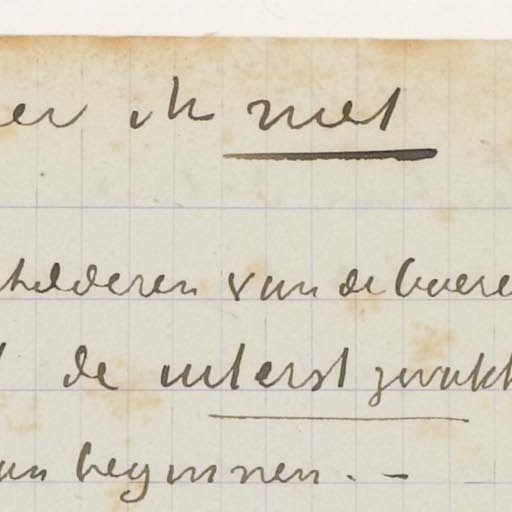 er ik niet
hilderen van de boere
de uiterst zwakk
an beginnen. –